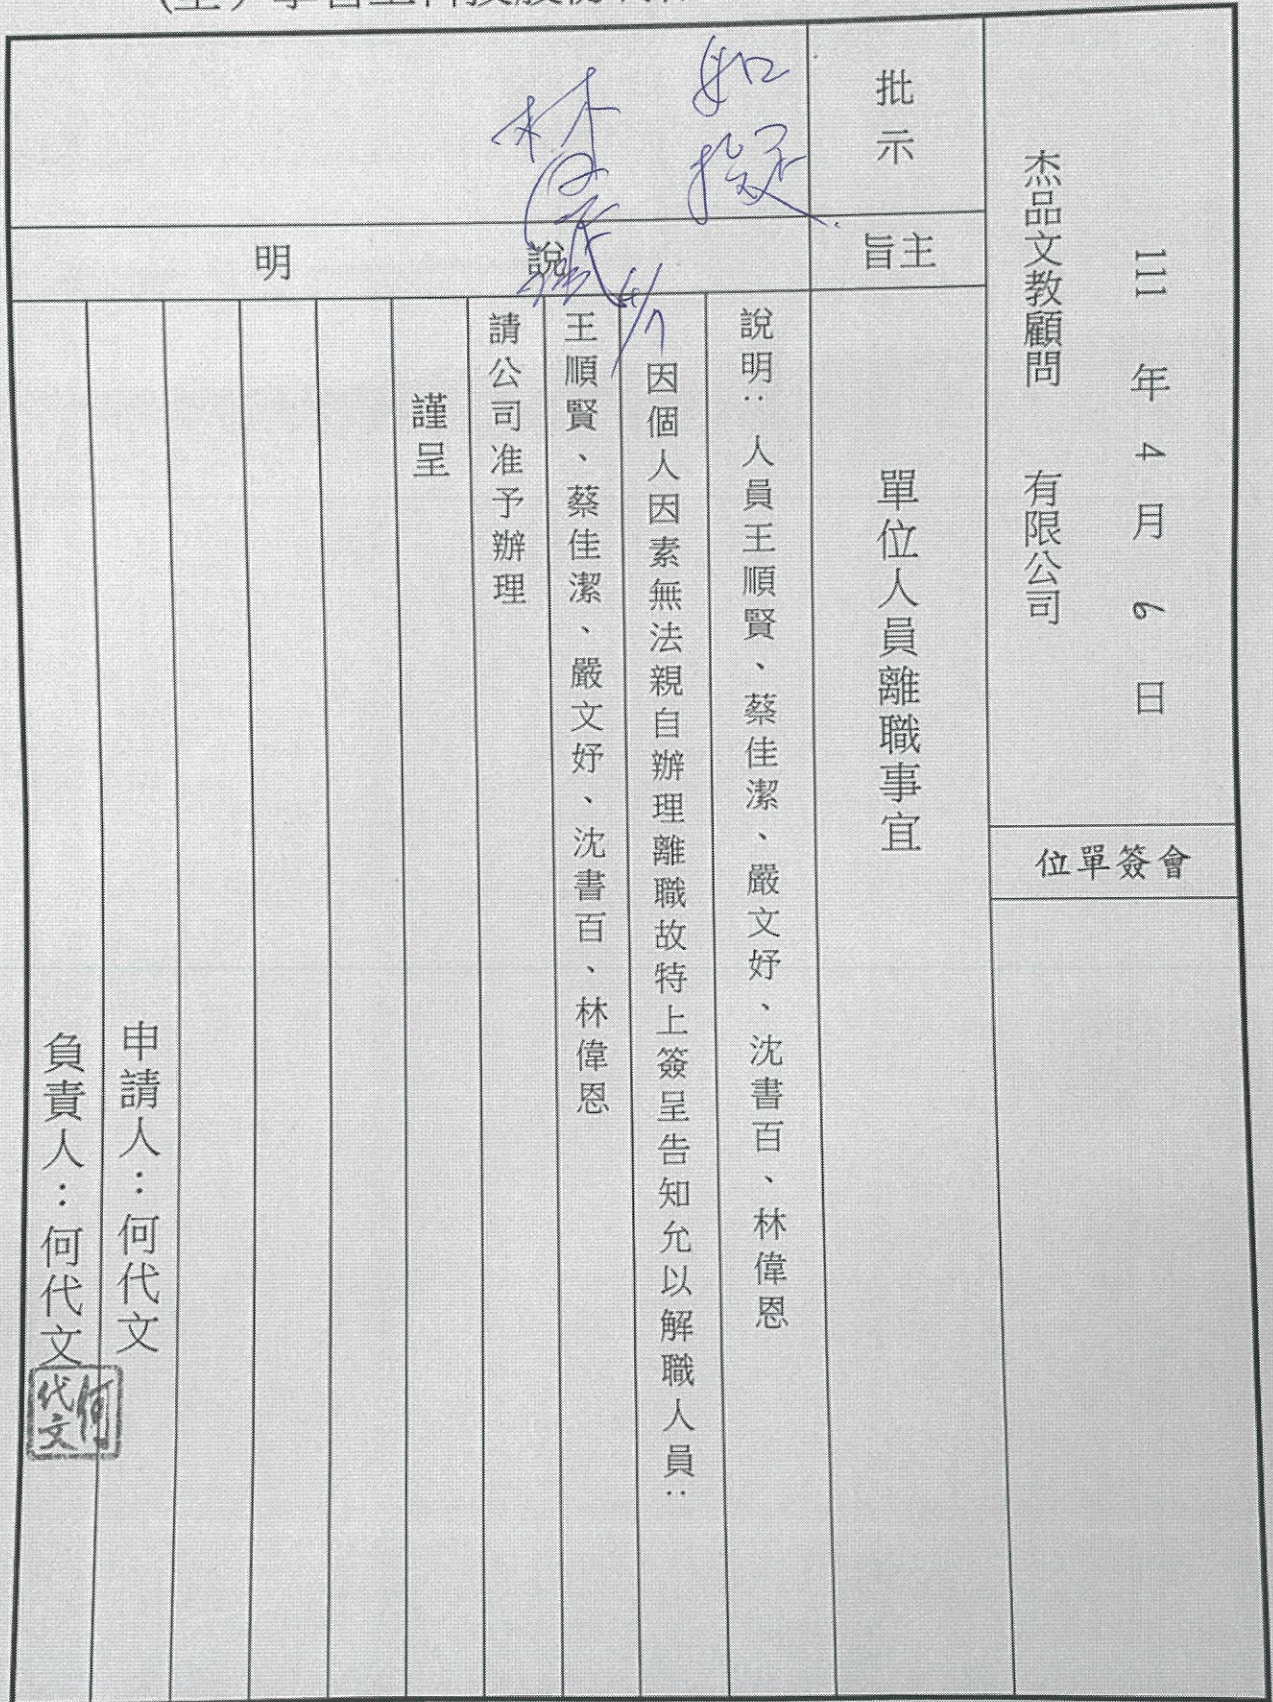 111 年 4 月 6 日
杰品文教顧問 有限公司
會簽單位
批示
如擬
林
4/7
主旨
單位人員離職事宜
說明
說明：人員王順賢、蔡佳潔、嚴文妤、沈書百、林偉恩
因個人因素無法親自辦理離職故特上簽呈告知允以解職人員：
王順賢、蔡佳潔、嚴文妤、沈書百、林偉恩
請公司准予辦理
謹呈
申請人：何代文
負責人：何代文
何代文